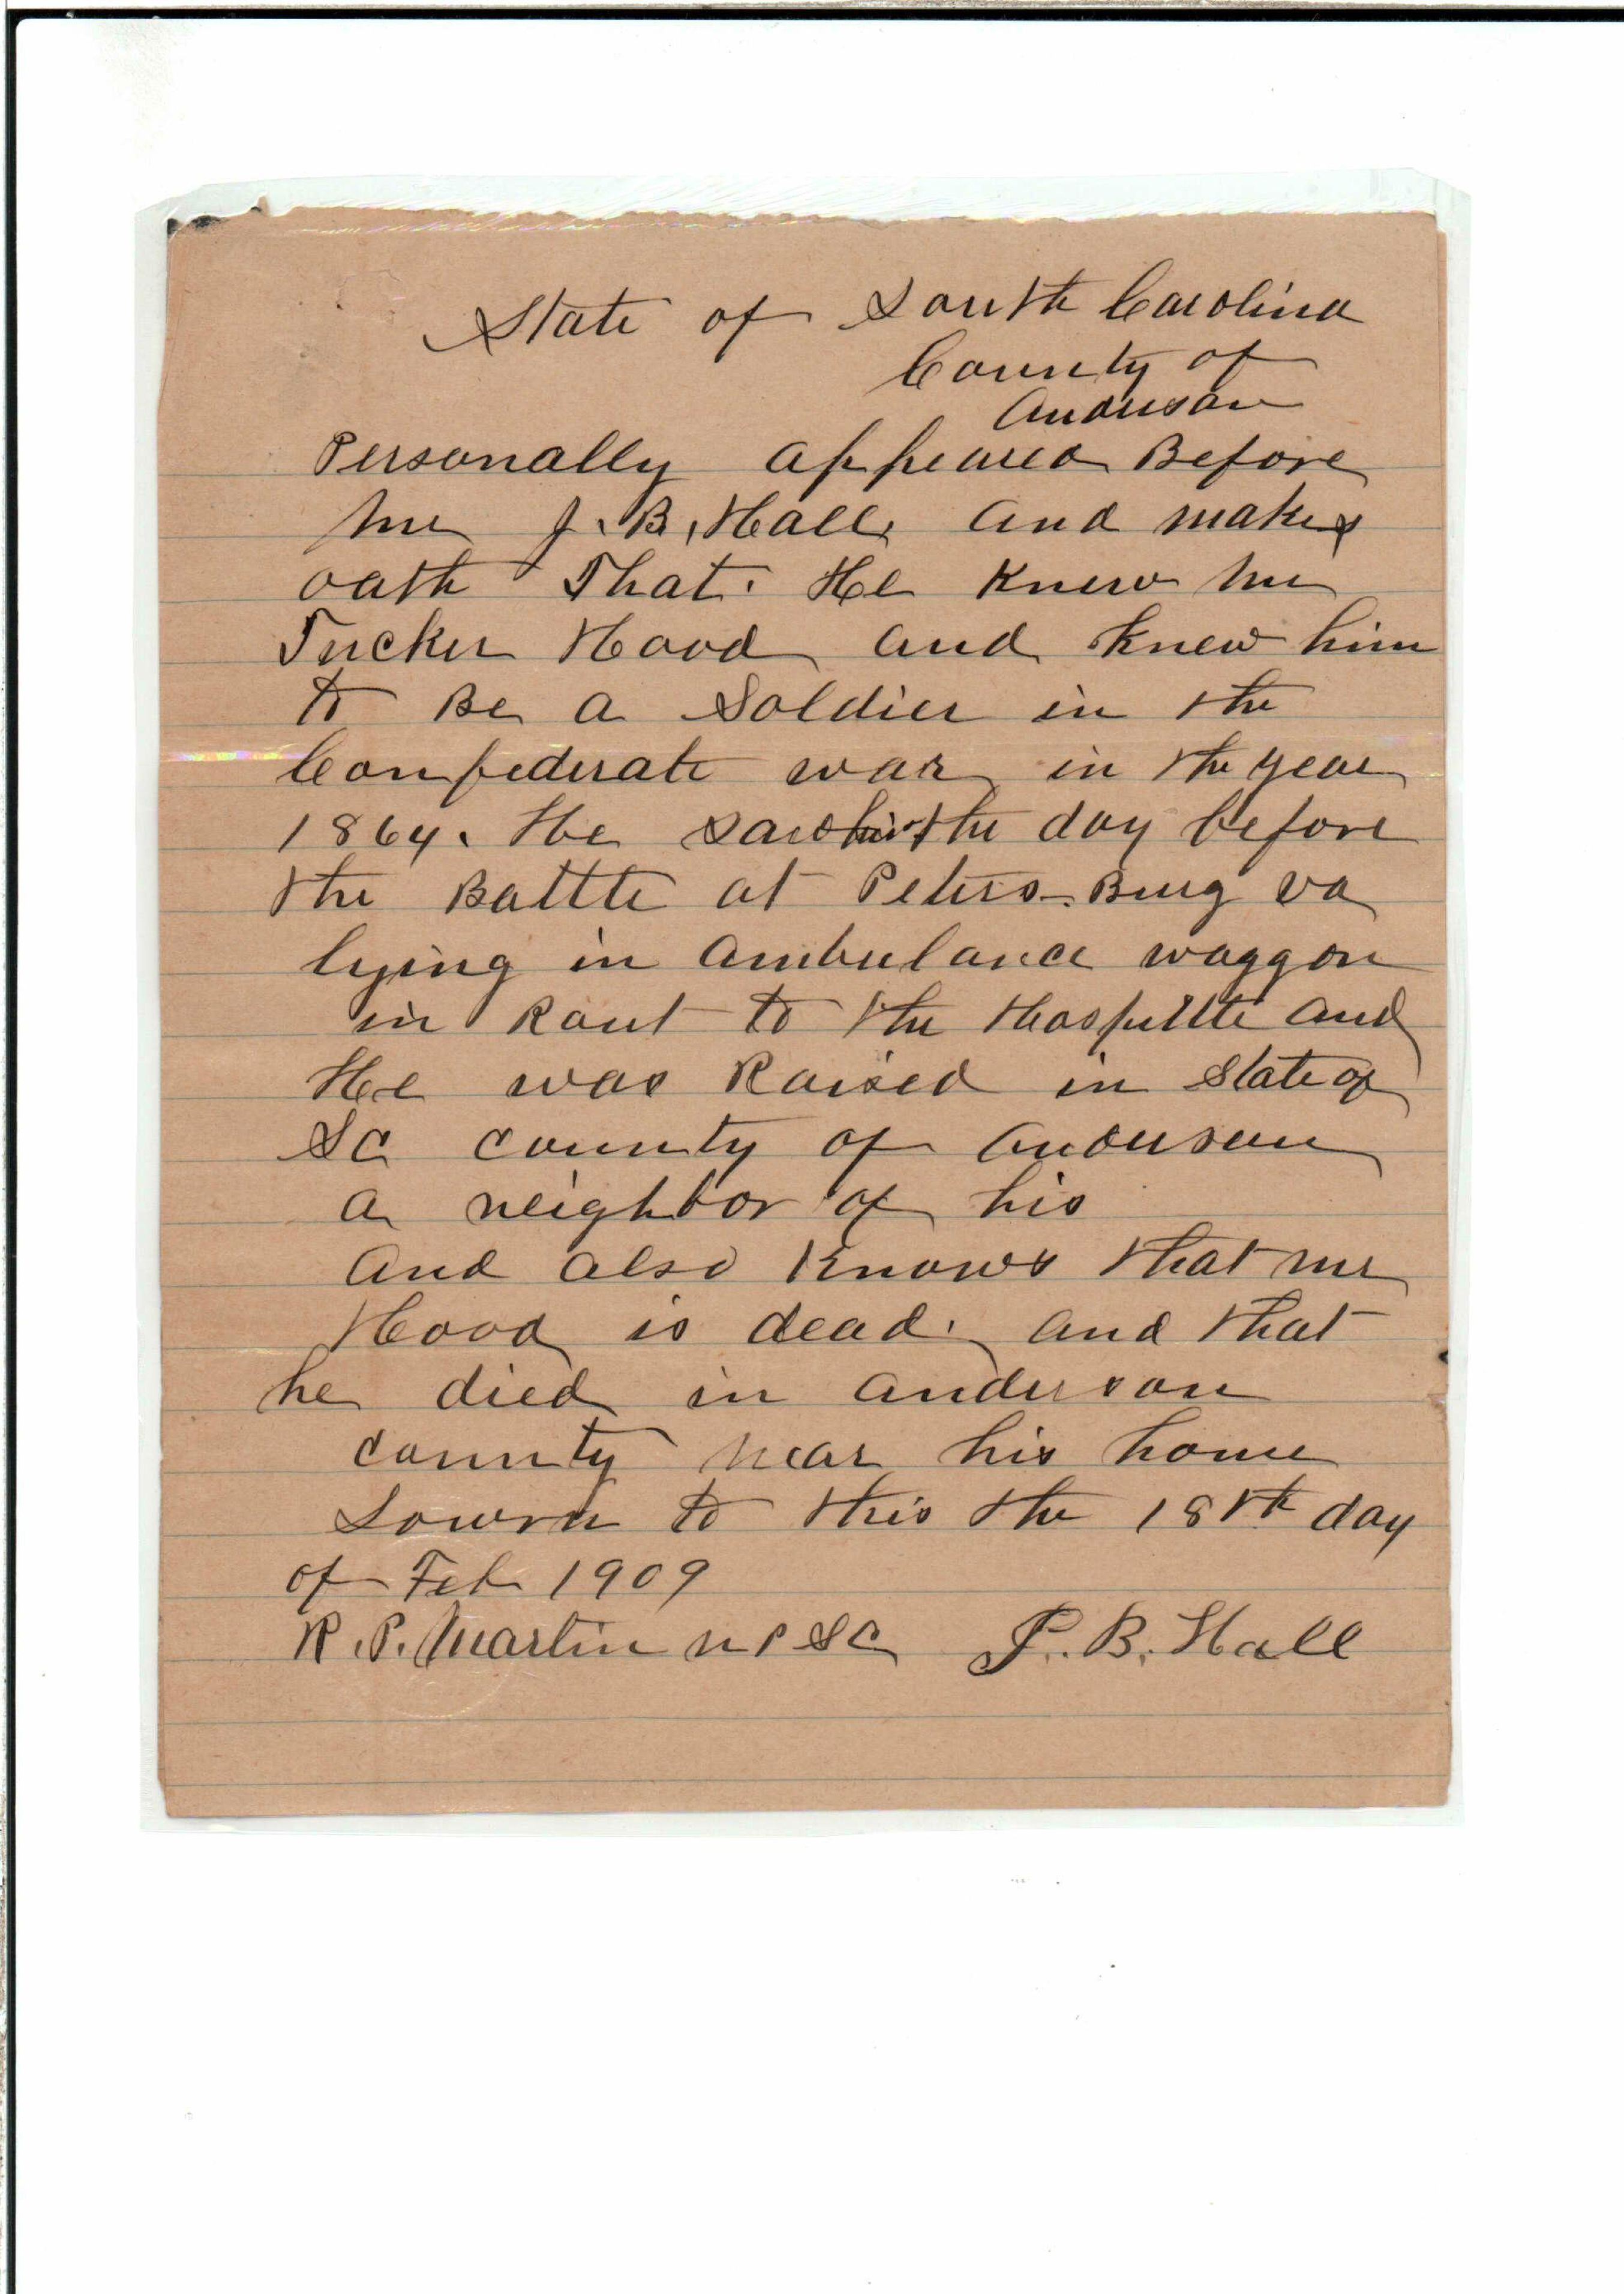 State of South Carolina
County of
Anderson
Personally appeared Before
me J. B. Hall and makes
oath That. He Knew Mr
Tucker Hood and knew him
to Be a Soldier in the
Confederate war in the year
1864. He saw him the day before
the Battle at Peters-Burg va
lying in ambulance waggon
in Rout to the Hospittle and
He was Raised in State of
SC county of anderson
a neighbor of his
and also Knows that mr
Hood is dead. and that
he died in anderson
county near his home
Sowrn to this the 18th day
of Feb 1909
R. P. Martin N P SC J. B. Hall